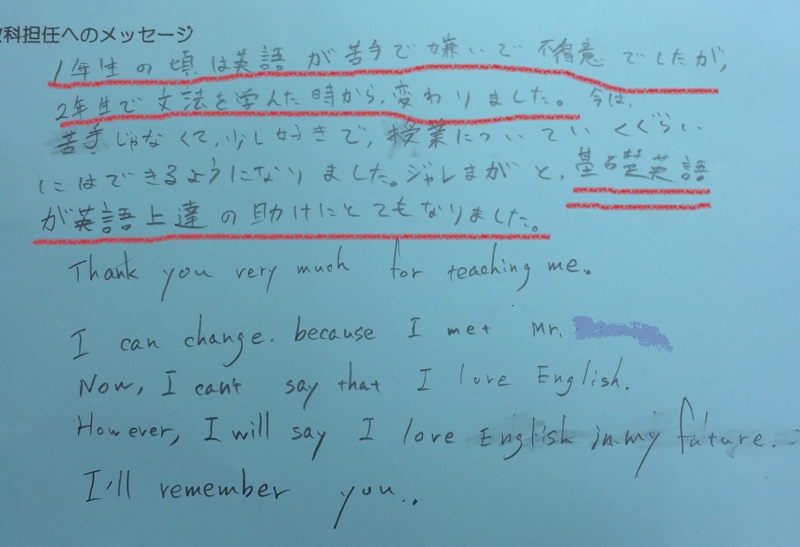 教科担任へのメッセージ
1年生の頃は英語が苦手で嫌いで不得意でしたが,
2年生で文法を学んだ時から,変わりました。今は,
苦手じゃなくて,少し好きで,授業についていくぐらい
にはできるようになりました。ジャレまがと,基礎英語
が英語上達の助けにとてもなりました。
Thank you very much for teaching me.
I can change. because I met Mr.
Now, I can't say that I love English.
However, I will say I love English in my future.
I'll remember you..